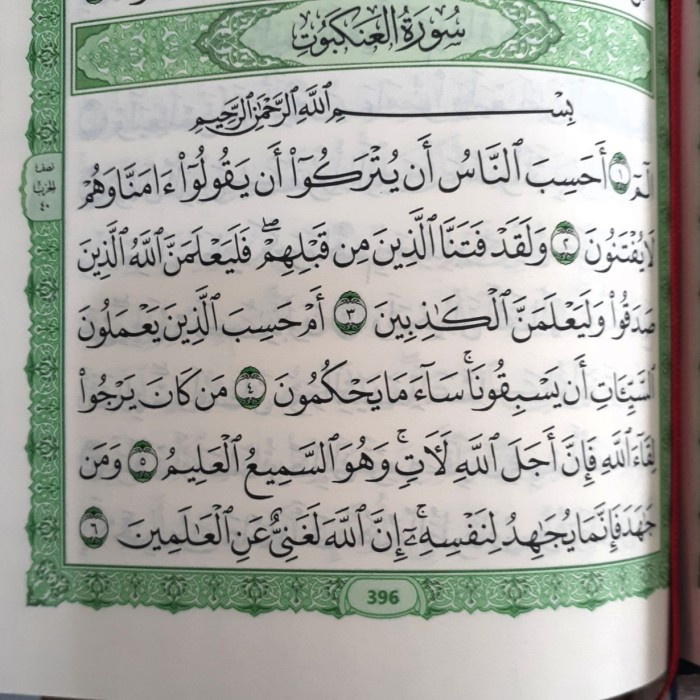 سُورَةُ الْعَنكَبُوتِ
بِسْمِ اللَّهِ الرَّحْمَٰنِ الرَّحِيمِ
الٓمٓ ١ أَحَسِبَ ٱلنَّاسُ أَن يُتْرَكُوٓا۟ أَن يَقُولُوٓا۟ ءَامَنَّا وَهُمْ
لَا يُفْتَنُونَ ٢ وَلَقَدْ فَتَنَّا ٱلَّذِينَ مِن قَبْلِهِمْ ۖ فَلَيَعْلَمَنَّ ٱللَّهُ ٱلَّذِينَ
صَدَقُوا۟ وَلَيَعْلَمَنَّ ٱلْكَٰذِبِينَ ٣ أَمْ حَسِبَ ٱلَّذِينَ يَعْمَلُونَ
ٱلسَّيِّـَٔاتِ أَن يَسْبِقُونَا ۚ سَآءَ مَا يَحْكُمُونَ ٤ مَن كَانَ يَرْجُوا۟
لِقَآءَ ٱللَّهِ فَإِنَّ أَجَلَ ٱللَّهِ لَـَٔاتٍ ۚ وَهُوَ ٱلسَّمِيعُ ٱلْعَلِيمُ ٥ وَمَن
جَٰهَدَ فَإِنَّمَا يُجَٰهِدُ لِنَفْسِهِۦٓ ۚ إِنَّ ٱللَّهَ لَغَنِىٌّ عَنِ ٱلْعَٰلَمِينَ ٦
نصف
الحزب
٤٠
396